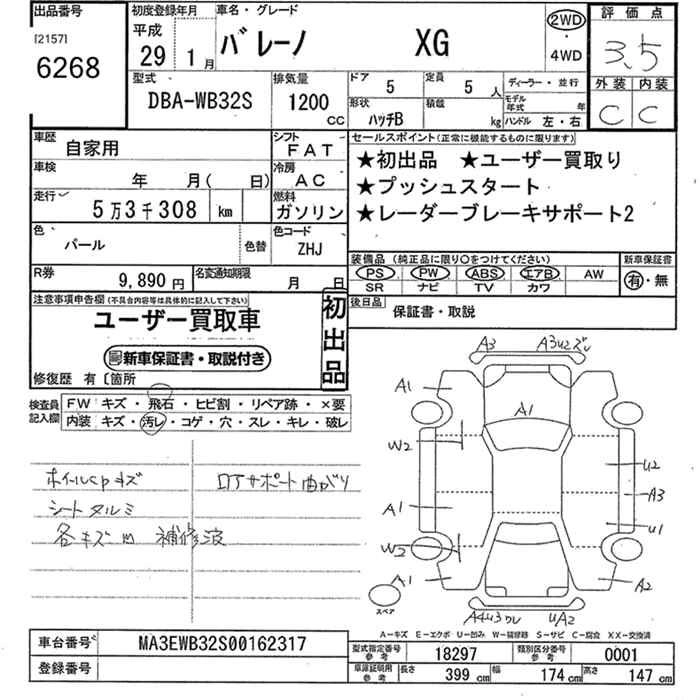 出品番号
[2157]
6268
初度登録年月
平成
29 1月
車名・グレード
バレーノ XG
2WD
・
4WD
評価点
3.5
外装 内装
C C
型式
DBA-WB32S
排気量
1200
CC
ドア 5
定員 5 人
ディーラー・並行
形状 ハッチB
積載 kg
モデル年式 年
ハンドル 左・右
車歴 自家用
シフト FAT
車検 年 月( 日)
冷房 AC
走行 5万3千308 km
燃料 ガソリン
色 パール
色替
色コード ZHJ
R券 9,890円
名変通知期限 月 日
セールスポイント(正常に機能するものに限ります)
★初出品 ★ユーザー買取り
★プッシュスタート
★レーダーブレーキサポート2
装備品 (純正品に限り○をつけてください)
PS PW ABS エアB AW
SR ナビ TV カワ
新車保証書
有・無
後日品 保証書・取説
注意事項申告欄(不具合内容等は具体的に記入して下さい)
ユーザー買取車
新車保証書・取説付き
修復歴 有〔箇所
初出品
検査員記入欄
FW キズ・飛石・ヒビ割・リペア跡・×要
内装 キズ・汚レ・コゲ・穴・スレ・キレ・破レ
ホイールcpキズ
ロアサポート曲がり
シートタルミ
各キズ凹 補修波
A3 A3U2ズレ
A1
A1
W2
U2
A3
A1
U1
W2
A1
A2
スペア
A4U3ワレ UA2
A-キズ E-エクボ U-凹み W-補修跡 S-サビ C-腐食 XX-交換済
車台番号 MA3EWB32S00162317
登録番号
型式指定番号 参考 18297
類別区分番号 参考 0001
車庫証明用 参考 長さ 399 cm 幅 174 cm 高さ 147 cm